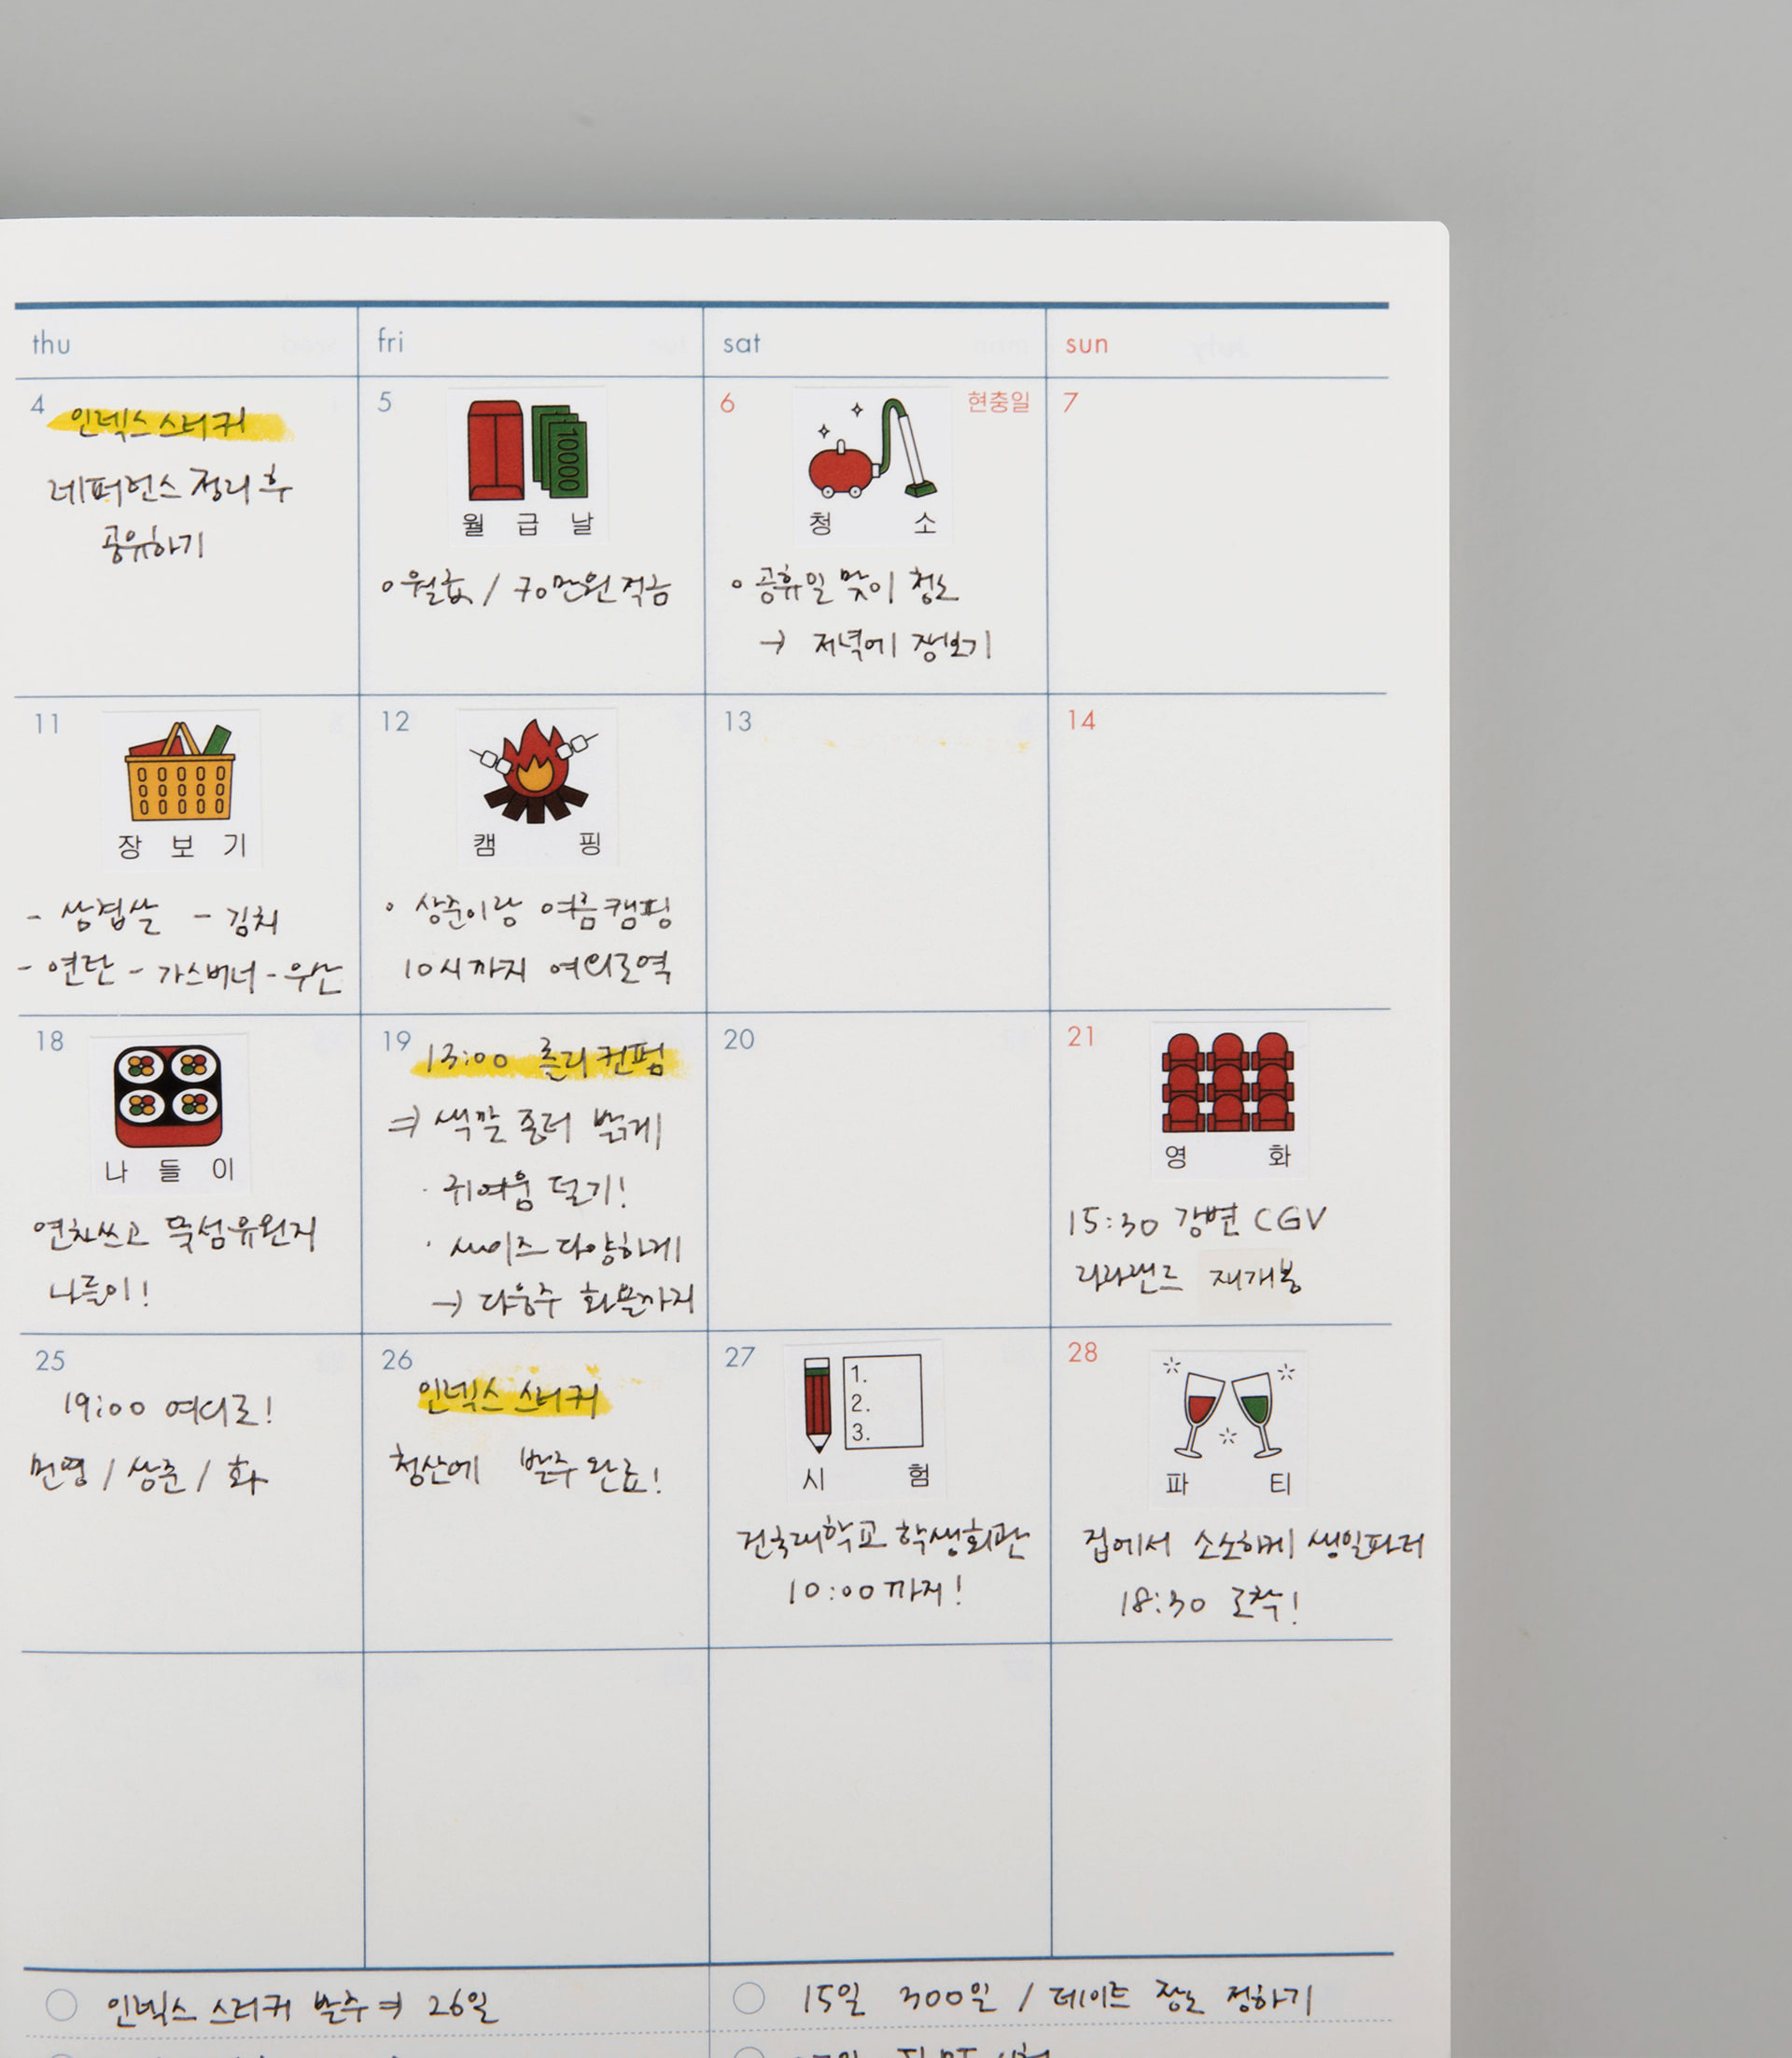 thu
fri
sat
sun
4
인덱스 스티커
레퍼런스 정리 후
공유하기
5
10000
월 급 날
월급 / 70만원 적금
6
현충일
청 소
공휴일 맞이 청소
→ 저녁에 장보기
7
11
장 보 기
- 삼겹살 - 김치
- 연탄 - 가스버너 - 우산
12
캠 핑
상준이랑 여름캠핑
10시까지 여의도역
13
14
18
나 들 이
연차쓰고 뚝섬유원지
나들이!
19
13:00 졸리 컨펌
⇒ 색깔 좀더 밝게
· 귀여움 덜기!
· 싸이즈 다양하게
→ 다음주 화요일까지
20
21
영 화
15:30 강변 CGV
라라랜드 재개봉
25
19:00 여의도!
민영 / 상준 / 화
26
인덱스 스티커
청산에 발주 완료!
27
1.
2.
3.
시 험
건국대학교 학생회관
10:00 까지!
28
파 티
집에서 소소하게 생일파티
18:30 도착!
인덱스 스티커 발주 ⇒ 26일
15일 300일 / 데이트 장소 정하기